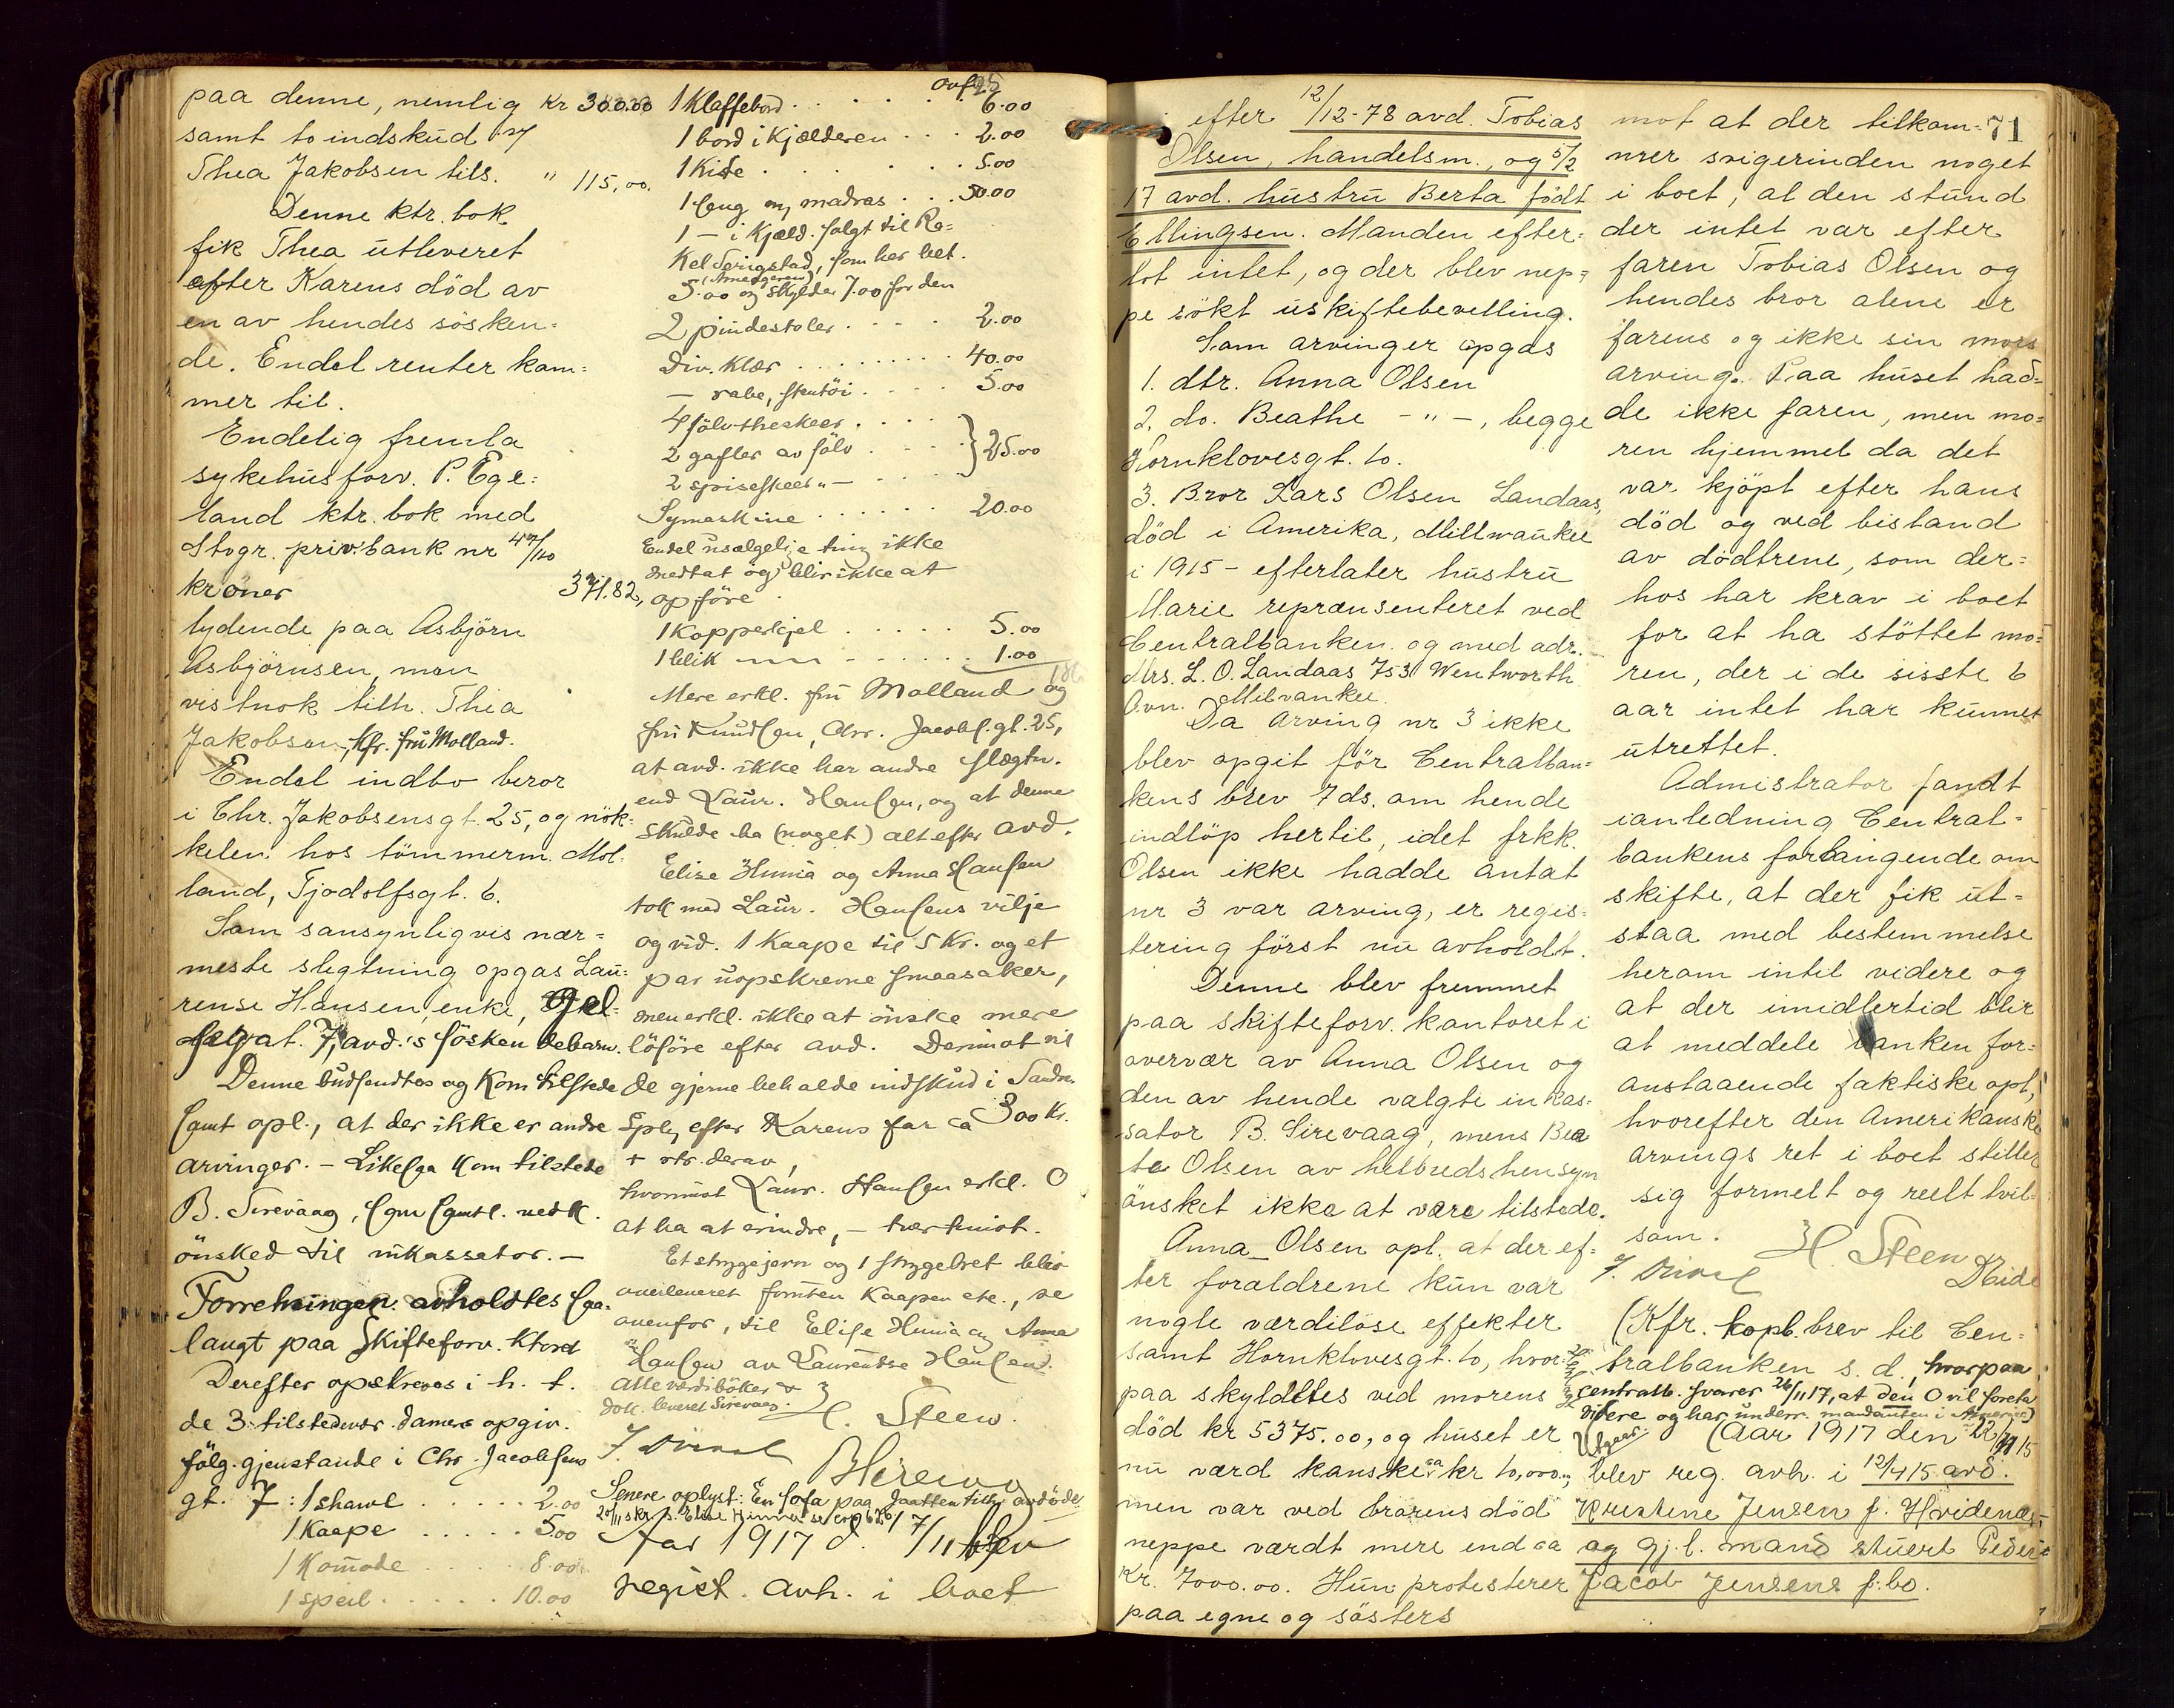 paa denne, nemlig kr 300.00
samt to indskud
Thea Jakobsen tils. " 115,00.
Denne ktr. bok
fik Thea utleveret
efter Karens död av
en av hendes sösken=
de. Endel renter kom=
mer til.
Endelig fremla
sykehusforv. P. Ege=
land ktr. bok med
Stvgr. priv.bank nr
kroner 371.82,
lydende paa Asbjörn
Asbjörnsen, men
vistnok tilh. Thea
Jakobsen, kfr. fru Molland.
Endel indbo beror
i Chr. Jakobsensgt. 25, og nök=
kelen hos tömmerm. Mol=
land, Tjodolfsgt. 6.
Som sansynligvis nær=
meste slegtning opgas Lau=
rense Hansen, enke,
gat. 7, avd.'s söskendebarn.
Denne budsendtes og kom tilstede
samt opl., at der ikke er andre
arvinger. – Likesaa kom tilstede
B. Sirevaag, som samtl. vedk.
önsked til inkassator. –
Forretningen avholdtes saa=
langt paa Skifteforv. ktoret
Derefter opskreves i h. t.
de 3 tilstedevær. damers opgiv.
fölg. gjenstande i Chr. Jacobsens
gt. 7: 1 shawl ..... 2.00
1 Kaape ..... 5.00
1 Komode .... 8.00
1 speil ..... 10.00
ovf. 25
1 Klaffebord ..... 6.00
1 bord i kjælderen ... 2.00
1 Kiste ..... 5.00
1 seng m/ madras ... 50.00
1 – i kjæld. solgt til Ra=
kel Serigstad, som har bet.
5.00 og skylder 7.00 for den
2 pindestoler .... 2.00
Div. klær ...... 40.00
– rabe, stentöi .... 5.00
4 sölv-theskeer ....
2 gafler av sölv ... } 25.00
2 spiseskeer " – ...
Symaskine ...... 20.00
Endel usælgelige ting ikke
medtat og blir ikke at
opföre
1 Kopperkjel ..... 5.00
1 blik –"– ..... 1.00
Mere erkl. fru Molland og
fru Knudsen, Chr. Jacobs.gt. 25,
at avd. ikke har andre slægtn.
end Laur. Hansen, og at denne
skulde ha (noget) alt efter avd.
Elise Hunia og Anna Hansen
tok med Laur. Hansens vilje
og vid. 1 Kaape til 5 Kr. og et
par uopskrevne smaasaker,
men erkl. ikke at önske mere
lösöre efter avd. Derimot vil
de gjerne beholde indskud i Sandn.
Spb. efter Karens far ca 300 Kr.
+ rtr. derav,
hvorimot Laur. Hansen erkl. 0
at ha at erindre, – tvertimot.
Et strygejern og 1 strygebret blev
overleveret foruten Kaapen etc., se
ovenfor, til Elise Hunia og Anna
Hansen av Laurentse Hansen.
Alle værdiböker &
dok. leveret Sirevaag.
H. Steen.
Senere oplyst: En sofa paa Jaatten tilh. avdöde
Aar 1917 d. 7/11 blev
regist. avh. i boet
71
efter 12/12-78 avd. Tobias
Olsen, handelsm., og 5/2
17 avd. hustru Berta född
Ellingsen. Manden efter=
lot intet, og der blev nep=
pe sökt uskiftebevilling.
Som arvinger opgas
1. dtr. Anna Olsen
2. do. Beathe –"–, begge
Hornklovesgt. 10.
3. Bror Lars Olsen Landaas,
död i Amerika, Millwaukee
i 1915 – efterlater hustru
Marie repræsenteret ved
Centralbanken og med adr.
Mrs. L. O. Landaas 753 Wentworth
Avn. Milvankee.
Da arving nr 3 ikke
blev opgit för Centralban=
kens brev 7 ds. om hende
indlöp hertil, idet frkk.
Olsen ikke hadde antat
nr 3 var arving, er regis=
tering först nu avholdt.
Denne blev fremmet
paa skifteforv. kontoret i
overvær av Anna Olsen og
den av hende valgte inkas=
sator B. Sirevaag, mens Bea
te Olsen av helbredshensyn
önsket ikke at være tilstede.
Anna Olsen opl. at der ef=
ter foræeldrene kun var
nogle værdilöse effekter
samt Hornklovesgt. 10, hvor=
paa skyldtes ved morens
död kr 5375.00, og huset er
nu værd kanske ca kr 10,000.,
men var ved brorens död
neppe værdt mere end ca
kr. 7000.00. Hun protesterer
paa egne og sösters
mot at der tilkom=
mer svigerinden noget
i boet, al den stund
der intet var efter
faren Tobias Olsen og
hendes bror alene er
farens og ikke sin mors
arving. Paa huset had=
de ikke faren, men mo=
ren hjemmel da det
var kjöpt efter hans
död og ved bistand
av dödtrene, som der=
hos har krav i boet
for at ha stöttet mo=
ren, der i de sisste 6
aar intet har kunnet
utrettet.
Admistrator fandt
ianledning Central=
bankens forlangende om
skifte, at der fik ut=
staa med bestemmelse
herom intil videre og
at der imidlertid blir
at meddele banken for=
anstaaende faktiske opl.,
hvorefter den Amerikanske
arvings ret i boet stiller
sig formelt og reelt tvil=
som.
H. Steen
(Kfr. kopb. brev til Cen=
tralbanken s. d., hvorpaa
centralb. svarer 26/11 17, at den 0 vil foreta
videre og har underr. mandanten i Amerika)
Utgaar: (Aar 1917 den 22/11 15
blev reg. avh. i 12/4 15 avd.
Kristine Jensen f. Hvidenæs
og gj.l. mand stuert Peder
Jacob Jensens f.bo.